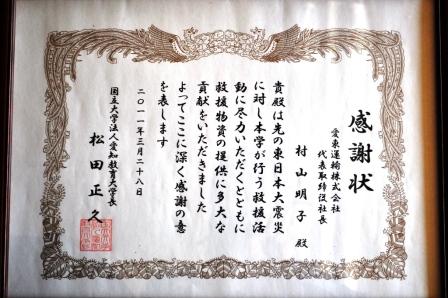 感謝状
愛東運輸株式会社
代表取締役社長
村山明子殿
貴殿は先の東日本大震災
に対し本学が行う救援活
動に尽力いただくとともに
救援物資の提供に多大な
貢献をいただきました
よってここに深く感謝の意
を表します
二〇一一年三月二十八日
国立大学法人愛知教育大学長
松田正久